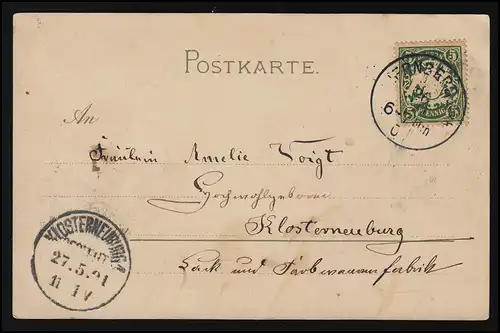 POSTKARTE.
5 5
5 PFENNIG 5
6
An
Fräulein Amelie Voigt
Hochwohlgeboren
Klosterneuburg
Lack und Farbwaarenfabrik
KLOSTERNEUBURG
27.5.01
11 IV